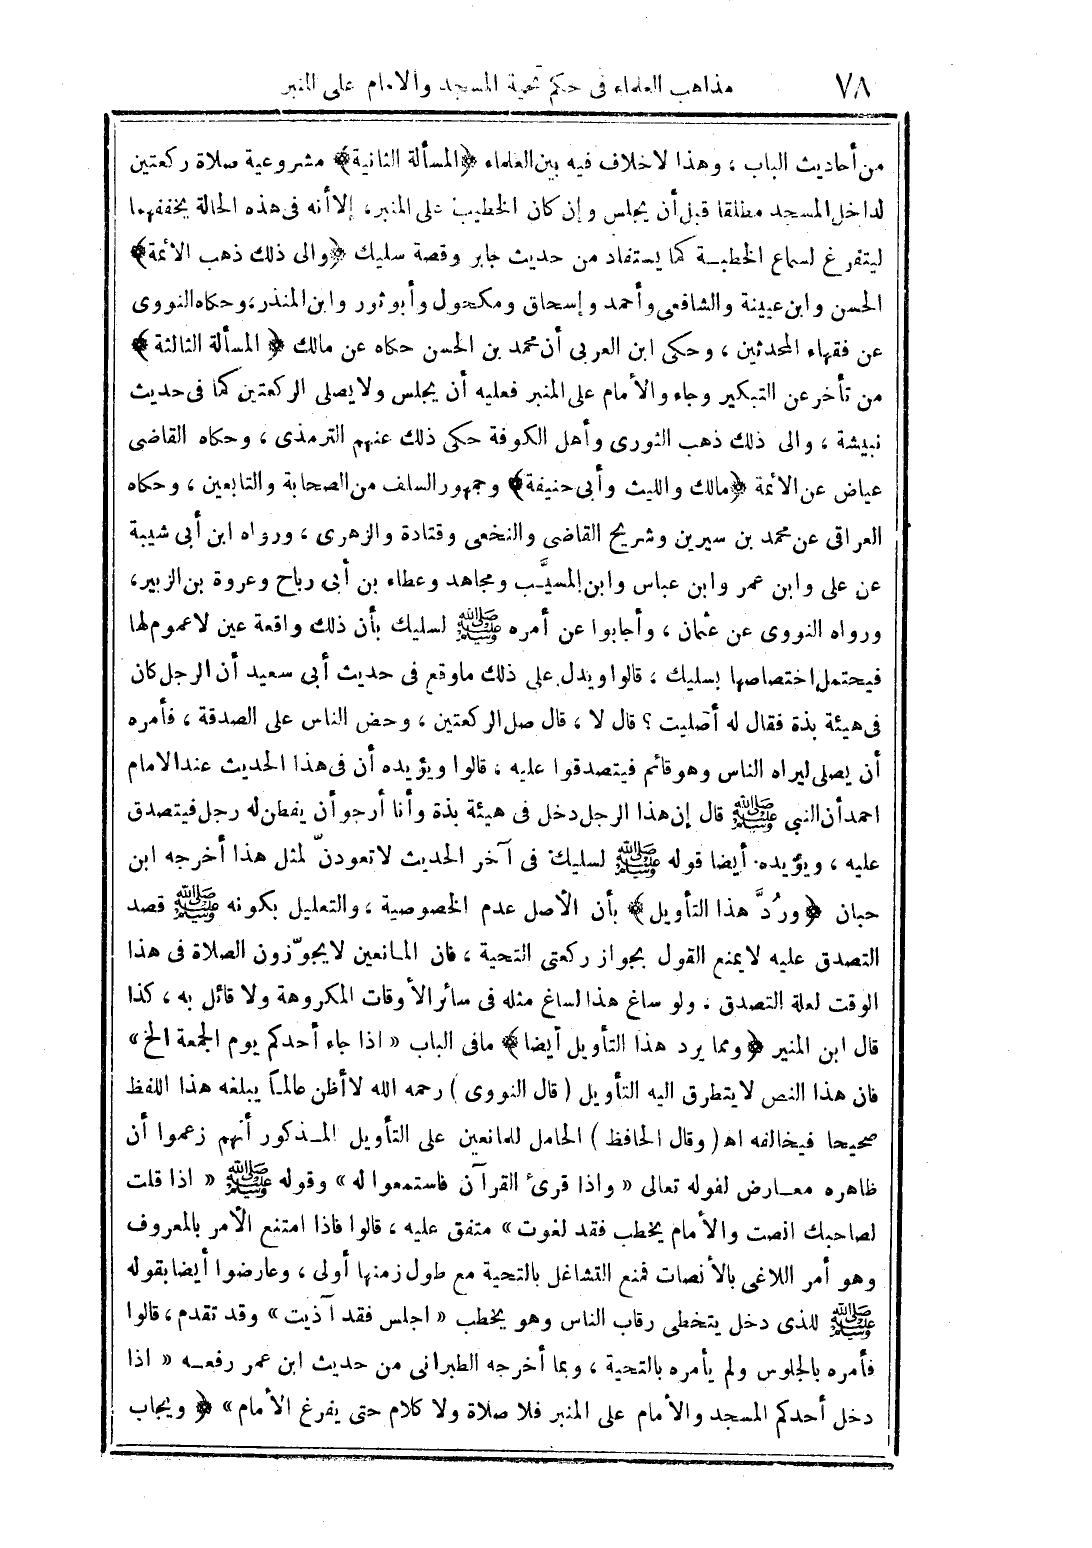 ٧٨ مذاهب العلماء فى حكم تحية المسجد والامام على المنبر
من أحاديث الباب ، وهذا لاخلاف فيه بين العلماء ﴿المسألة الثانية﴾ مشروعية صلاة ركعتين
لداخل المسجد مطلقا قبل أن يجلس وإن كان الخطيب على المنبر، إلا أنه فى هذه الحالة يخففهما
ليتفرغ لسماع الخطبة كما يستفاد من حديث جابر وقصة سليك ﴿والى ذلك ذهب الأئمة﴾
الحسن وابن عيينة والشافعى وأحمد وإسحاق ومكحول وأبو ثور وابن المنذر، وحكاه النووى
عن فقهاء المحدثين ، وحكى ابن العربى أن محمد بن الحسن حكاه عن مالك ﴿ المسألة الثالثة ﴾
من تأخر عن التبكير وجاء والأمام على المنبر فعليه أن يجلس ولا يصلى الركعتين كما فى حديث
نبيشة ، والى ذلك ذهب الثورى وأهل الكوفة حكى ذلك عنهم الترمذى ، وحكاه القاضى
عياض عن الأئمة ﴿مالك والليث وأبى حنيفة﴾ وجمهور السلف من الصحابة والتابعين ، وحكاه
العراقى عن محمد بن سيرين وشريح القاضى والنخعى وقتادة والزهرى ، ورواه ابن أبى شيبة
عن على وابن عمر وابن عباس وابن المسيَّب ومجاهد وعطاء بن أبى رباح وعروة بن الزبير،
ورواه النووى عن عثمان ، وأجابوا عن أمره ﷺ لسليك بأن ذلك واقعة عين لا عموم لها
فيحتمل اختصاصها بسليك ، قالوا ويدل على ذلك ماوقع فى حديث أبى سعيد أن الرجل كان
فى هيئة بذة فقال له أصليت ؟ قال لا ، قال صل الركعتين ، وحض الناس على الصدقة ، فأمره
أن يصلى ليراه الناس وهو قائم فيتصدقوا عليه ، قالوا ويؤيده أن فى هذا الحديث عند الامام
احمد أن النبى ﷺ قال إن هذا الرجل دخل فى هيئة بذة وأنا أرجو أن يفطن له رجل فيتصدق
عليه ، ويؤيده أيضا قوله ﷺ لسليك فى آخر الحديث لاتعودنّ لمثل هذا أخرجه ابن
حبان ﴿ورُدَّ هذا التأويل﴾ بأن الأصل عدم الخصوصية ، والتعليل بكونه ﷺ قصد
التصدق عليه لايمنع القول بجواز ركعتى التحية ، فان المانعين لايجوّزون الصلاة فى هذا
الوقت لعلة التصدق . ولو ساغ هذا لساغ مثله فى سائر الأوقات المكروهة ولا قائل به ، كذا
قال ابن المنير ﴿ومما يرد هذا التأويل أيضا﴾ مافى الباب « اذا جاء أحدكم يوم الجمعة الخ »
فان هذا النص لايتطرق اليه التأويل ( قال النووى ) رحمه الله لاأظن عالمـًا يبلغه هذا اللفظ
صحيحا فيخالفه اهـ ( وقال الحافظ ) الحامل للمانعين على التأويل المذكور أنهم زعموا أن
ظاهره معارض لقوله تعالى « واذا قرئ القرآن فاستمعوا له » وقوله ﷺ « اذا قلت
لصاحبك انصت والأمام يخطب فقد لغوت » متفق عليه ، قالوا فاذا امتنع الأمر بالمعروف
وهو أمر اللاغى بالأنصات فمنع التشاغل بالتحية مع طول زمنها أولى ، وعارضوا أيضا بقوله
ﷺ للذى دخل يتخطى رقاب الناس وهو يخطب « اجلس فقد آذيت » وقد تقدم ، قالوا
فأمره بالجلوس ولم يأمره بالتحية ، وبما أخرجه الطبرانى من حديث ابن عمر رفعه « اذا
دخل أحدكم المسجد والأمام على المنبر فلا صلاة ولا كلام حتى يفرغ الأمام » ﴿ ويجاب